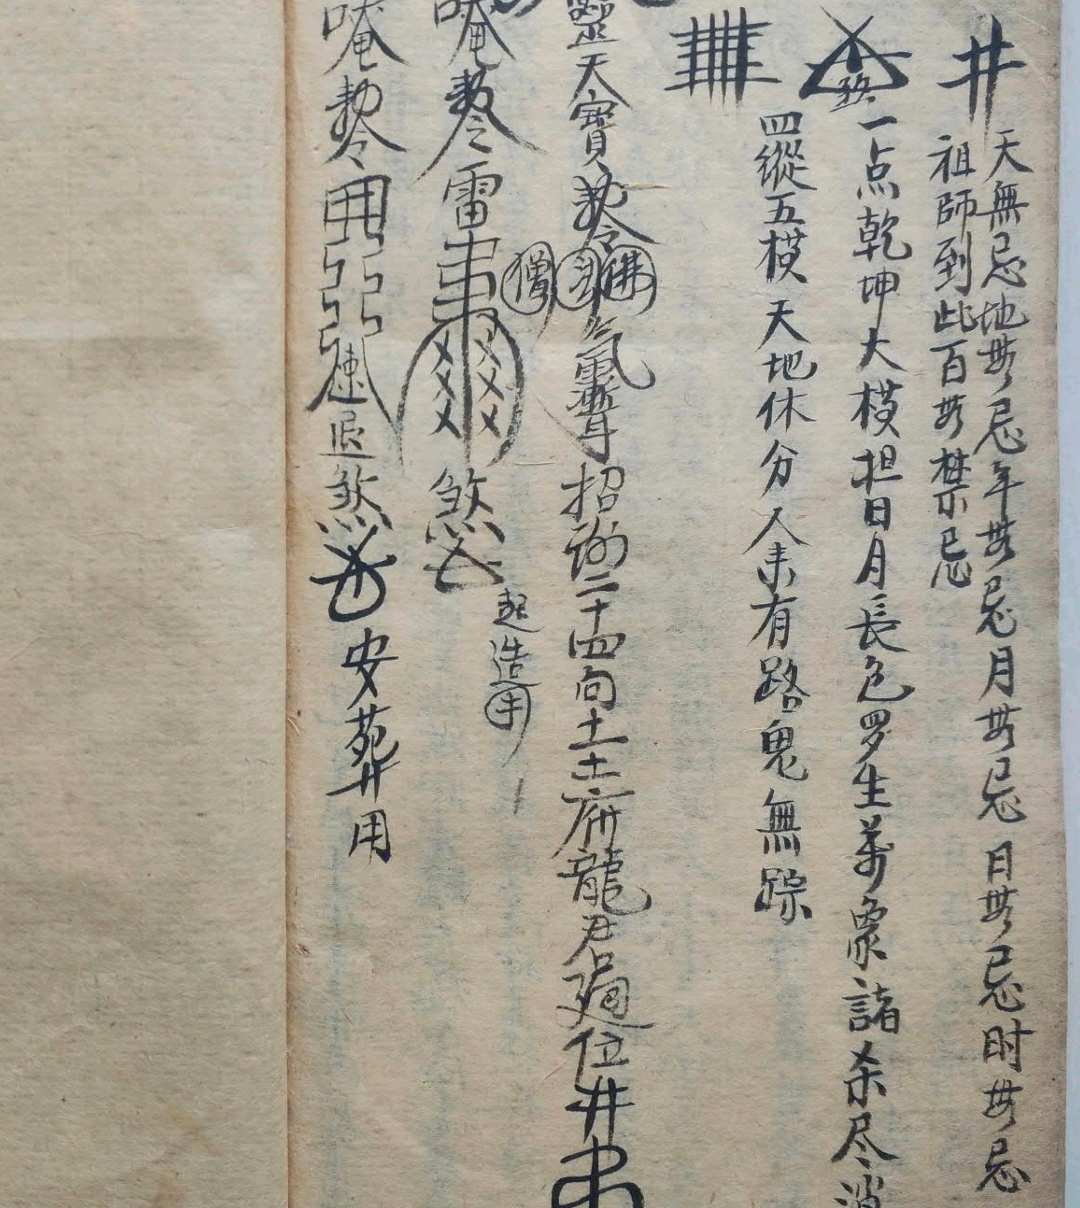 井
天無忌地無忌年無忌月無忌日無忌时無忌
祖師到此百無禁忌
一点乾坤大横担日月長包罗生萬象諸杀尽消
四縱五横天地休分人来有路鬼無踪
天寶敕令佛
僧
招謝二十四向土土府龍君廻位井
唵敕令雷
煞
起造用
唵敕令
速退煞
安葬用